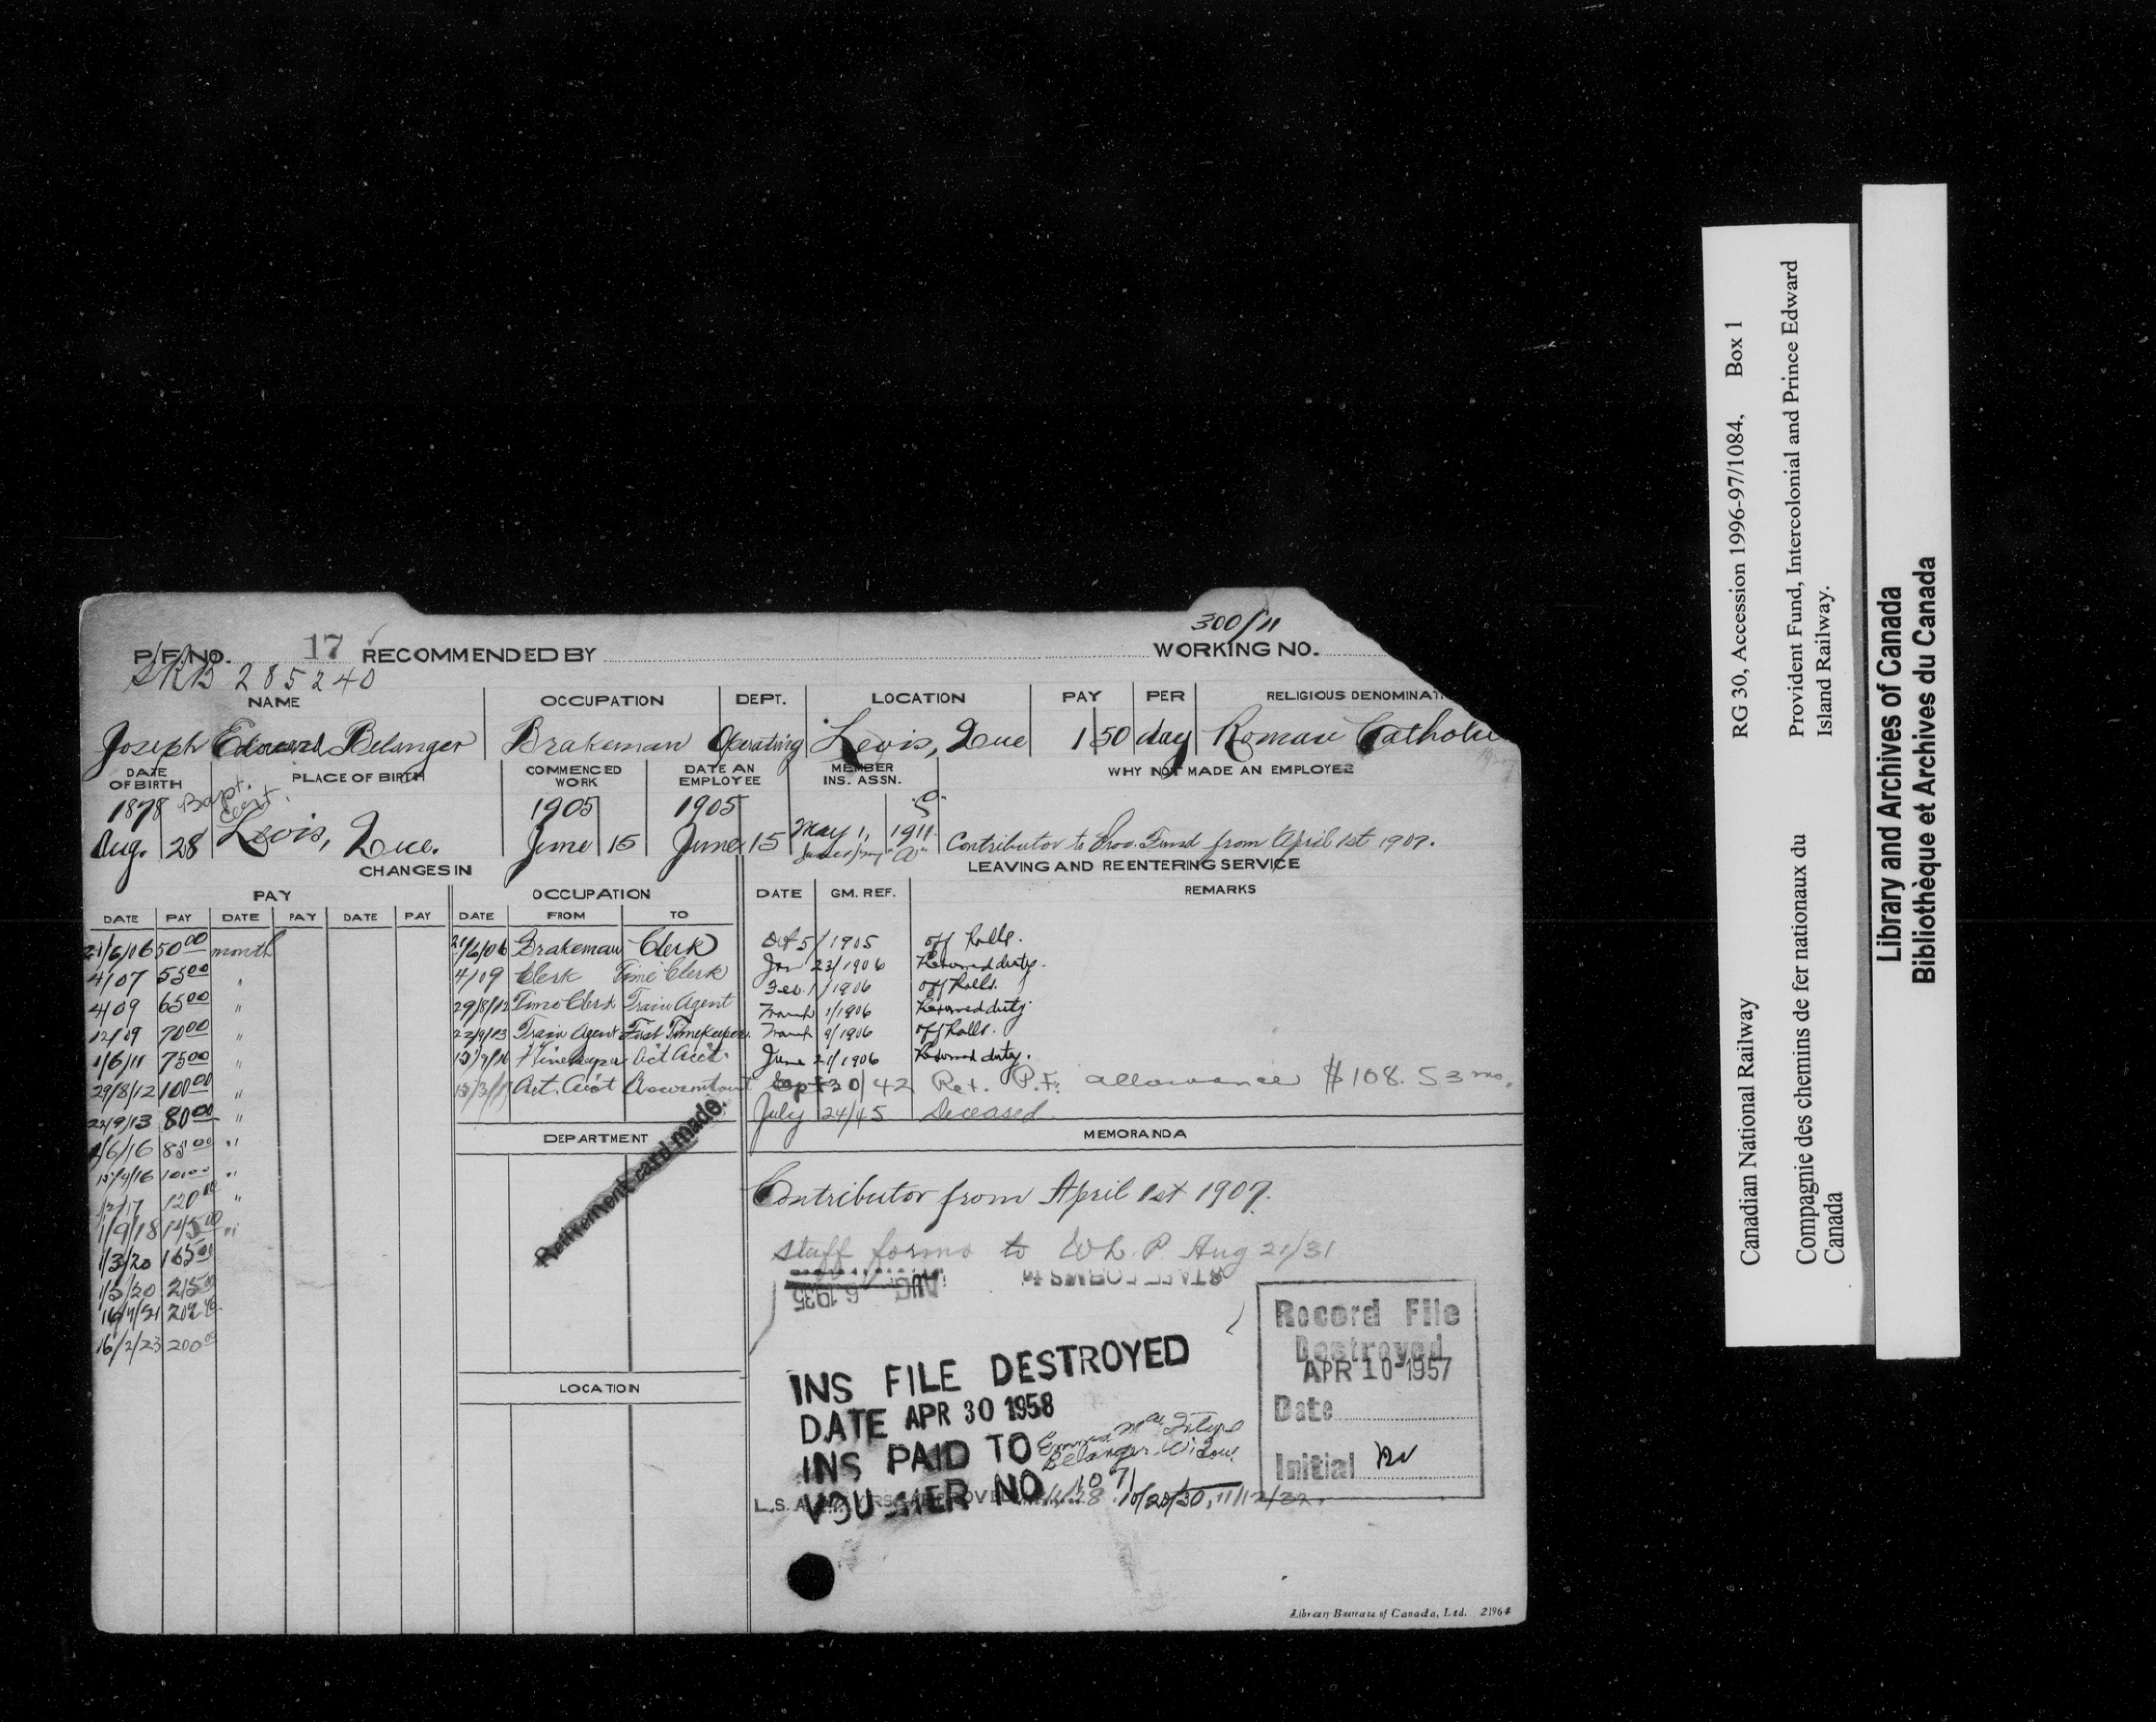 300/11
P.F. NO. 17 RECOMMENDED BY WORKING NO.
285240
NAME OCCUPATION DEPT. LOCATION PAY PER RELIGIOUS DENOMINAT
Joseph Edward Belanger Brakeman Operating Levis, Que 1 50 day Roman Catholic
DATE OF BIRTH PLACE OF BIRTH COMMENCED WORK DATE AN EMPLOYEE MEMBER INS. ASSN. WHY NOT MADE AN EMPLOYEE
1878 Bapt. Cert. 1905 1905
Aug. 28 Levis, Que. June 15 June 15 May 1, 1911 Contributor to Prov. Fund from April 1st 1907.
"A"
CHANGES IN LEAVING AND REENTERING SERVICE
PAY OCCUPATION DATE GM. REF. REMARKS
DATE PAY DATE PAY DATE PAY DATE FROM TO
21/6/06 50 00 month 21/6/06 Brakeman Clerk
4/07 55 00 " 4/09 Clerk Time Clerk
4/09 65 00 " 29/8/12 Time Clerk Train Agent
12/09 70 00 " 22/9/13 Train Agent First Timekeeper
1/6/11 75 00 " Timekeeper Act Acct.
29/8/12 100 00 " Act. Acct Accountant
22/9/13 80 00 "
1/6/16 85 00 "
100 00 "
120 00 "
1/9/18 145 00 "
1/3/20 165 00
1/5/20 215 00
16/2/23 200 00
Oct 5/1905 off Rolls.
Jan 23/1906 Resumed duty.
Feb. 1/1906 off Rolls.
March 1/1906 Resumed duty
March 9/1906 off Rolls.
June 21/1906 Resumed duty.
Sept 30/42 Ret. P.F. allowance $108.53 mo.
July 24/45 Deceased
DEPARTMENT
Retirement card made.
LOCATION
MEMORANDA
Contributor from April 1st 1907.
Staff forms to Aug 21/31
STAFF FORMS to
AUG 6 1935
INS FILE DESTROYED
DATE APR 30 1958
INS PAID TO Belanger Widow
VOUCHER NO 1071
10/28/30, 11/12/32.
Record File
Destroyed
APR 10 1957
Date
Initial
Library Bureau of Canada, Ltd. 21964
Canadian National Railway RG 30, Accession 1996-97/1084, Box 1
Compagnie des chemins de fer nationaux du Canada
Provident Fund, Intercolonial and Prince Edward Island Railway.
Library and Archives of Canada
Bibliothèque et Archives du Canada